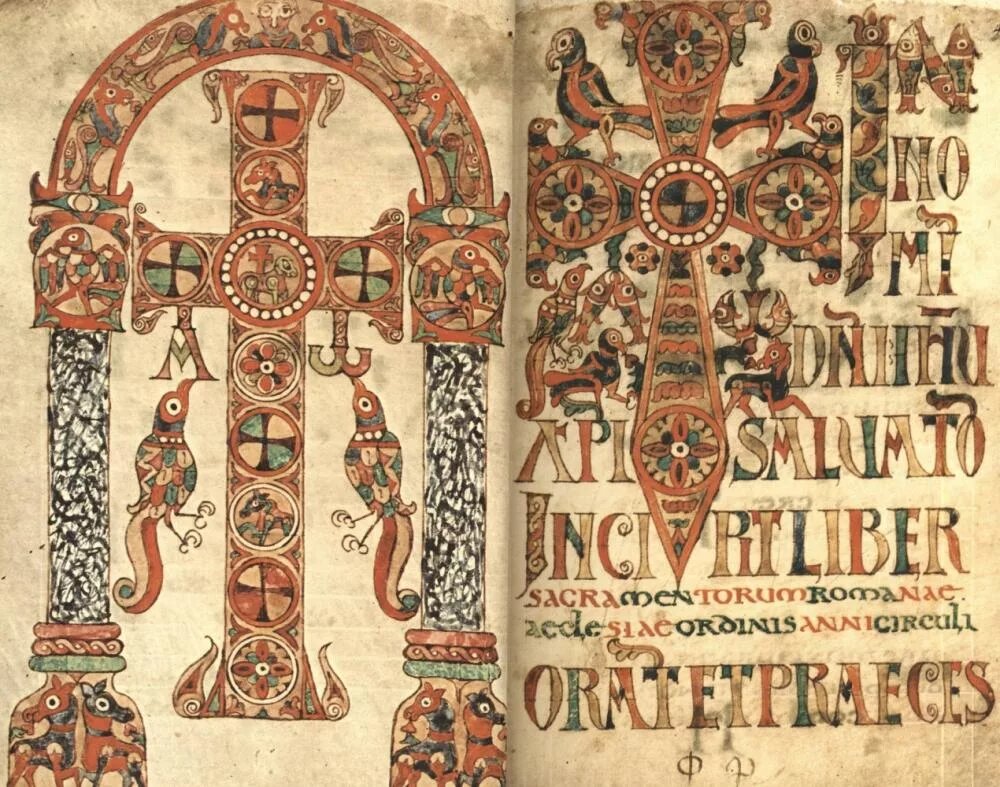 Α ω
IN
NO
MĪ
DÑI IH̄U
XPI SALUATO
INCIPIT LIBER
SACRAMENTORUM ROMANAE.
aeclesiae ORDINIS ANNI CIRCULI
ORAT ET PRAECES